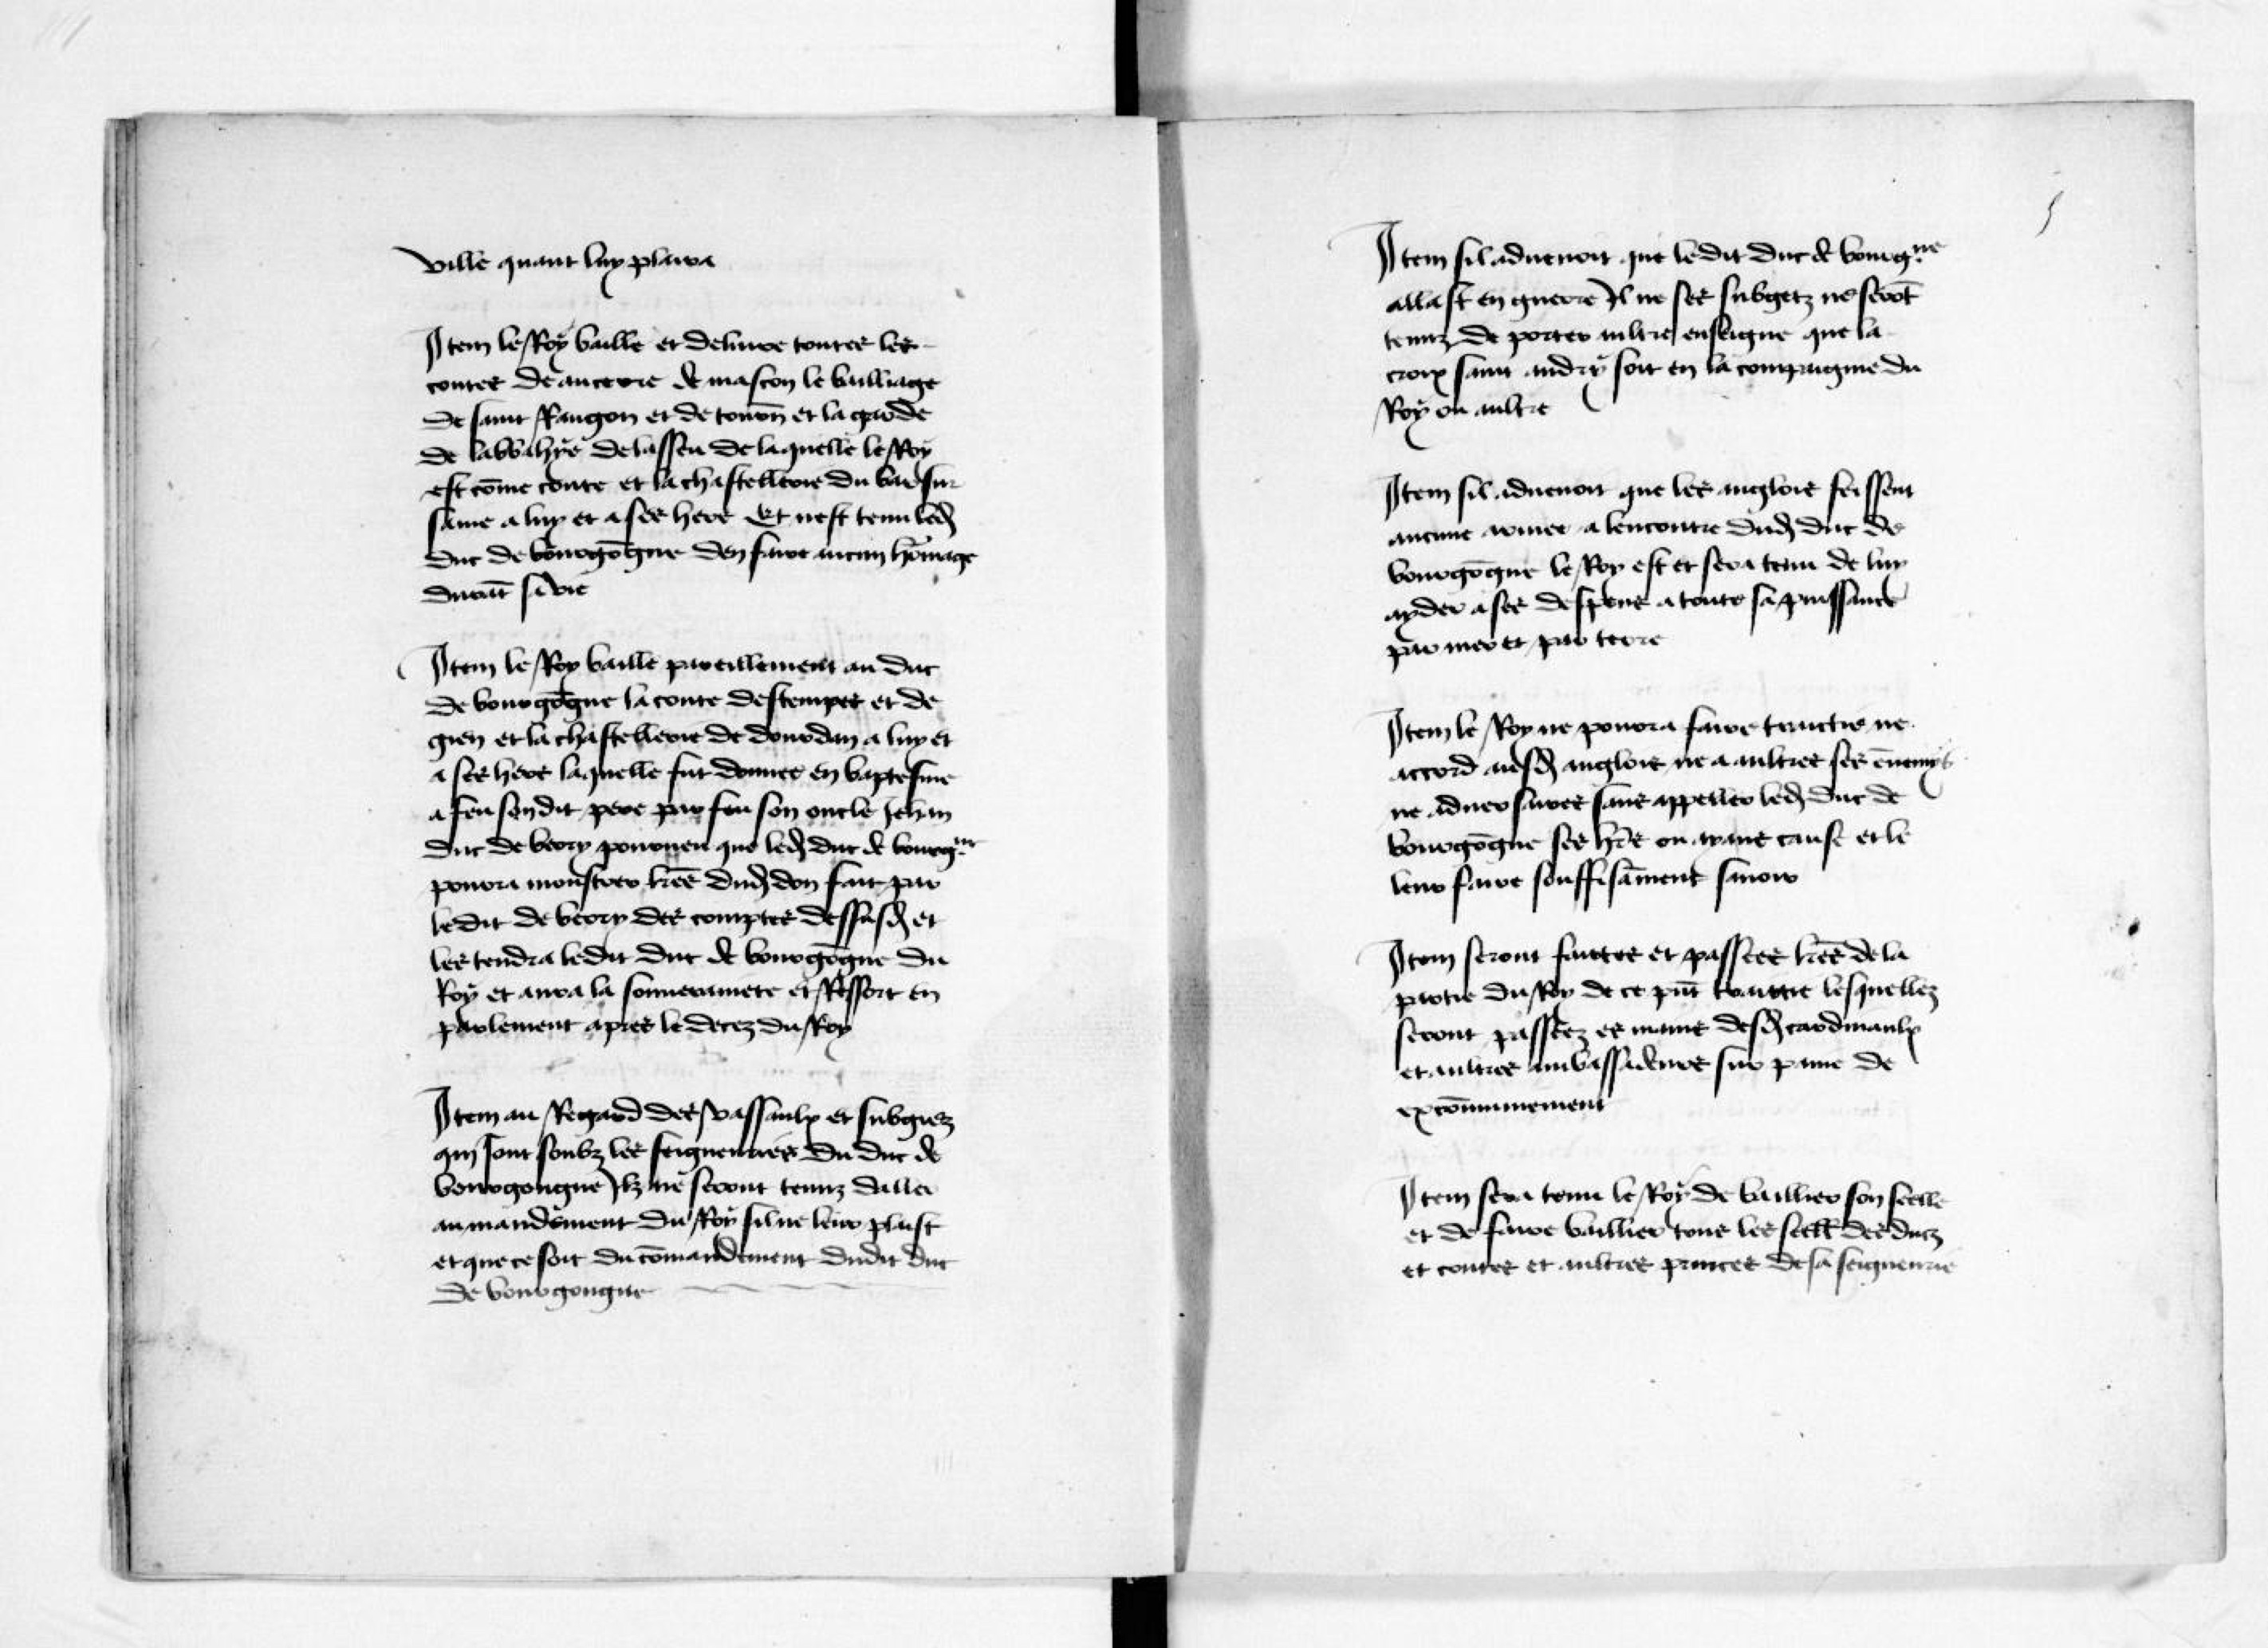 ville quant luy plaira
Item le Roy baille et deliure toutes les
contes de aucerre de mascon le bailliage
de saint Rangon et de touron et la garde
de labbahye de lasseu de laquelle le Roy
est cõme conte et la chastellerie du bar sur
saine a luy et a ses hers Et nest tenu led
duc de bourgõgne den faire aucun hõmage
durãt sa vie
Item le Roy baille pareillement au duc
de bourgõgne la conte destempes et de
gien et la chastellerie de dourdan a luy et
a ses hers laquelle fut donnee en baptesme
a feu sondit pere par feu son oncle Jehan
duc de berry pourueu que led duc de bourgne
pourra monstrer lrẽs dud don fait par
ledit de berry des comptes dessusd et
les tendra ledit duc de bourgõgne du
Roy et aura la souuerainete et Ressort en
parlement apres le decez du Roy
Item au Regard des vassaulx et subgiez
qui sont soubz les seigneuries du duc de
bourgongne Ilz ne seront tenuz daller
au mandement du Roy sil ne leur plaist
et que ce soit du cõmandement dudit duc
de bourgongne
5
Item sil aduenoit que ledit duc de bourgne
allast en guerre Il ne ses subgetz ne serõt
tenuz de porter aultre enseigne que la
croix saint andry soit en la compaignie du
Roy ou aultre
Item sil aduenoit que les anglois feissent
aucune armee a lencontre dud duc de
bourgõgne le Roy est et sera tenu de luy
ayder a ses despens a toute sa puissance
par mer et par terre
Item le Roy ne pourra faire traictie ne
accord ausd anglois ne a aultres ses ẽnemys
ne aduersaires sans appeller led duc de
bourgõgne ses hrs ou ayans cause et le
leur faire souffisãment sauoir
Item seront faictes et passees lrẽs de la
partie du Roy de ce pñt traictie lesquellez
seront passeez es mains desd cardinaulx
et aultres ambassadeurs sur paine de
excõmuniement
Item sera tenu le Roy de baillier son seelle
et de faire baillier tous les seell des ducz
et contes et aultres princes de sa seigneurie